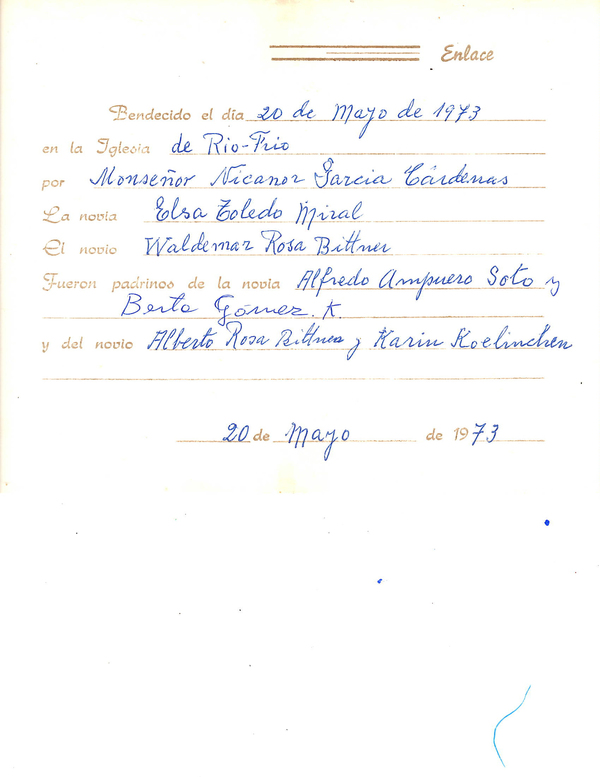 Enlace
Bendecido el día 20 de Mayo de 1973
en la Iglesia de Rio-Frio
por Monseñor Nicanor Garcia Cárdenas
La novia Elsa Toledo Miral
El novio Waldemar Rosa Bittner
Fueron padrinos de la novia Alfredo Ampuero Soto y
Berta Gómez. K.
y del novio Alberto Rosa Bittner y Karin Koelinchen
20 de Mayo de 1973